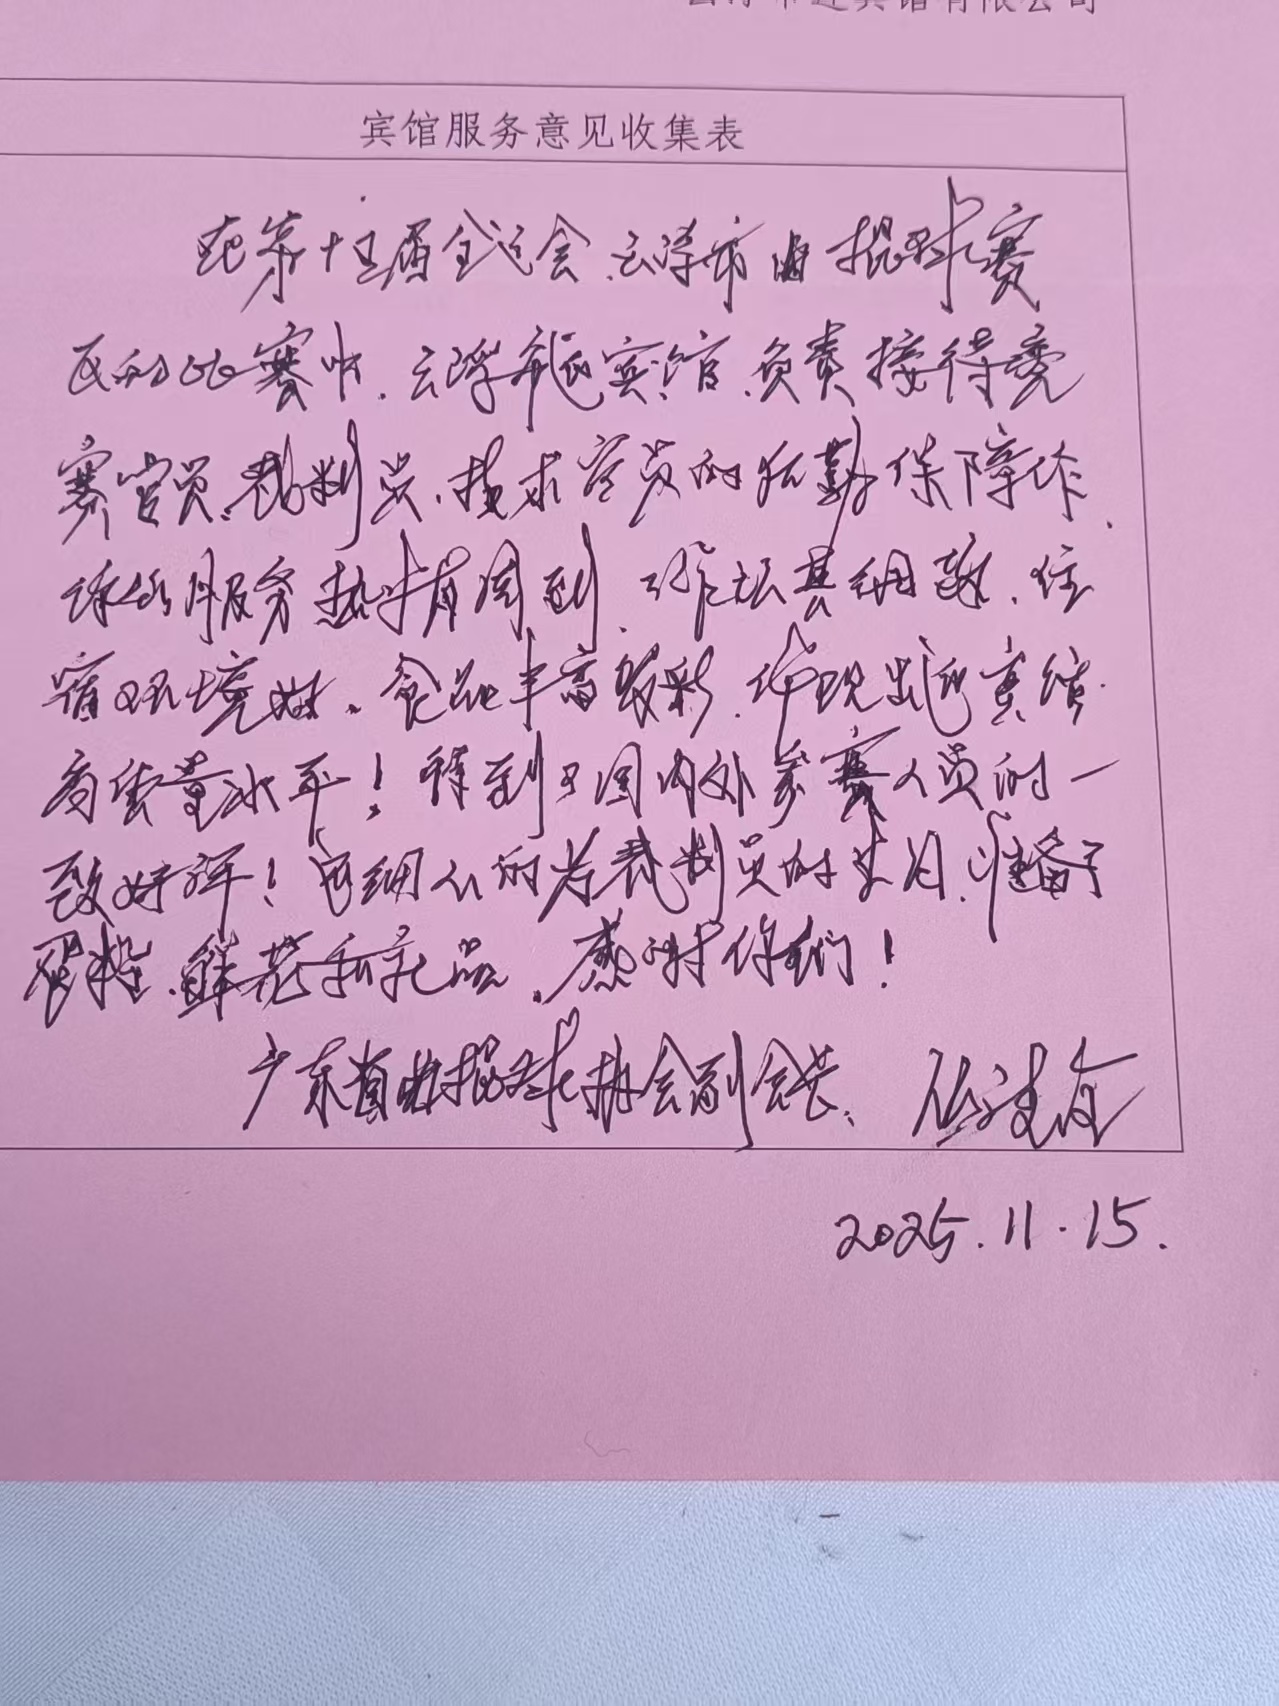 宾馆服务意见收集表
在第十五届全运会、云浮市曲棍球赛
区的比赛中、云浮宾馆、负责接待竞
赛官员、裁判员、技术官员的后勤保障工作、
你们服务热情周到、工作细致、住
宿环境好、食品丰富多彩、体现出宾馆
高质量水平!得到了国内外参赛人员的一
致好评!细心的为裁判员的生日、准备了
蛋糕、鲜花和礼品、感谢你们!
广东省曲棍球协会副会长、
2025.11.15.